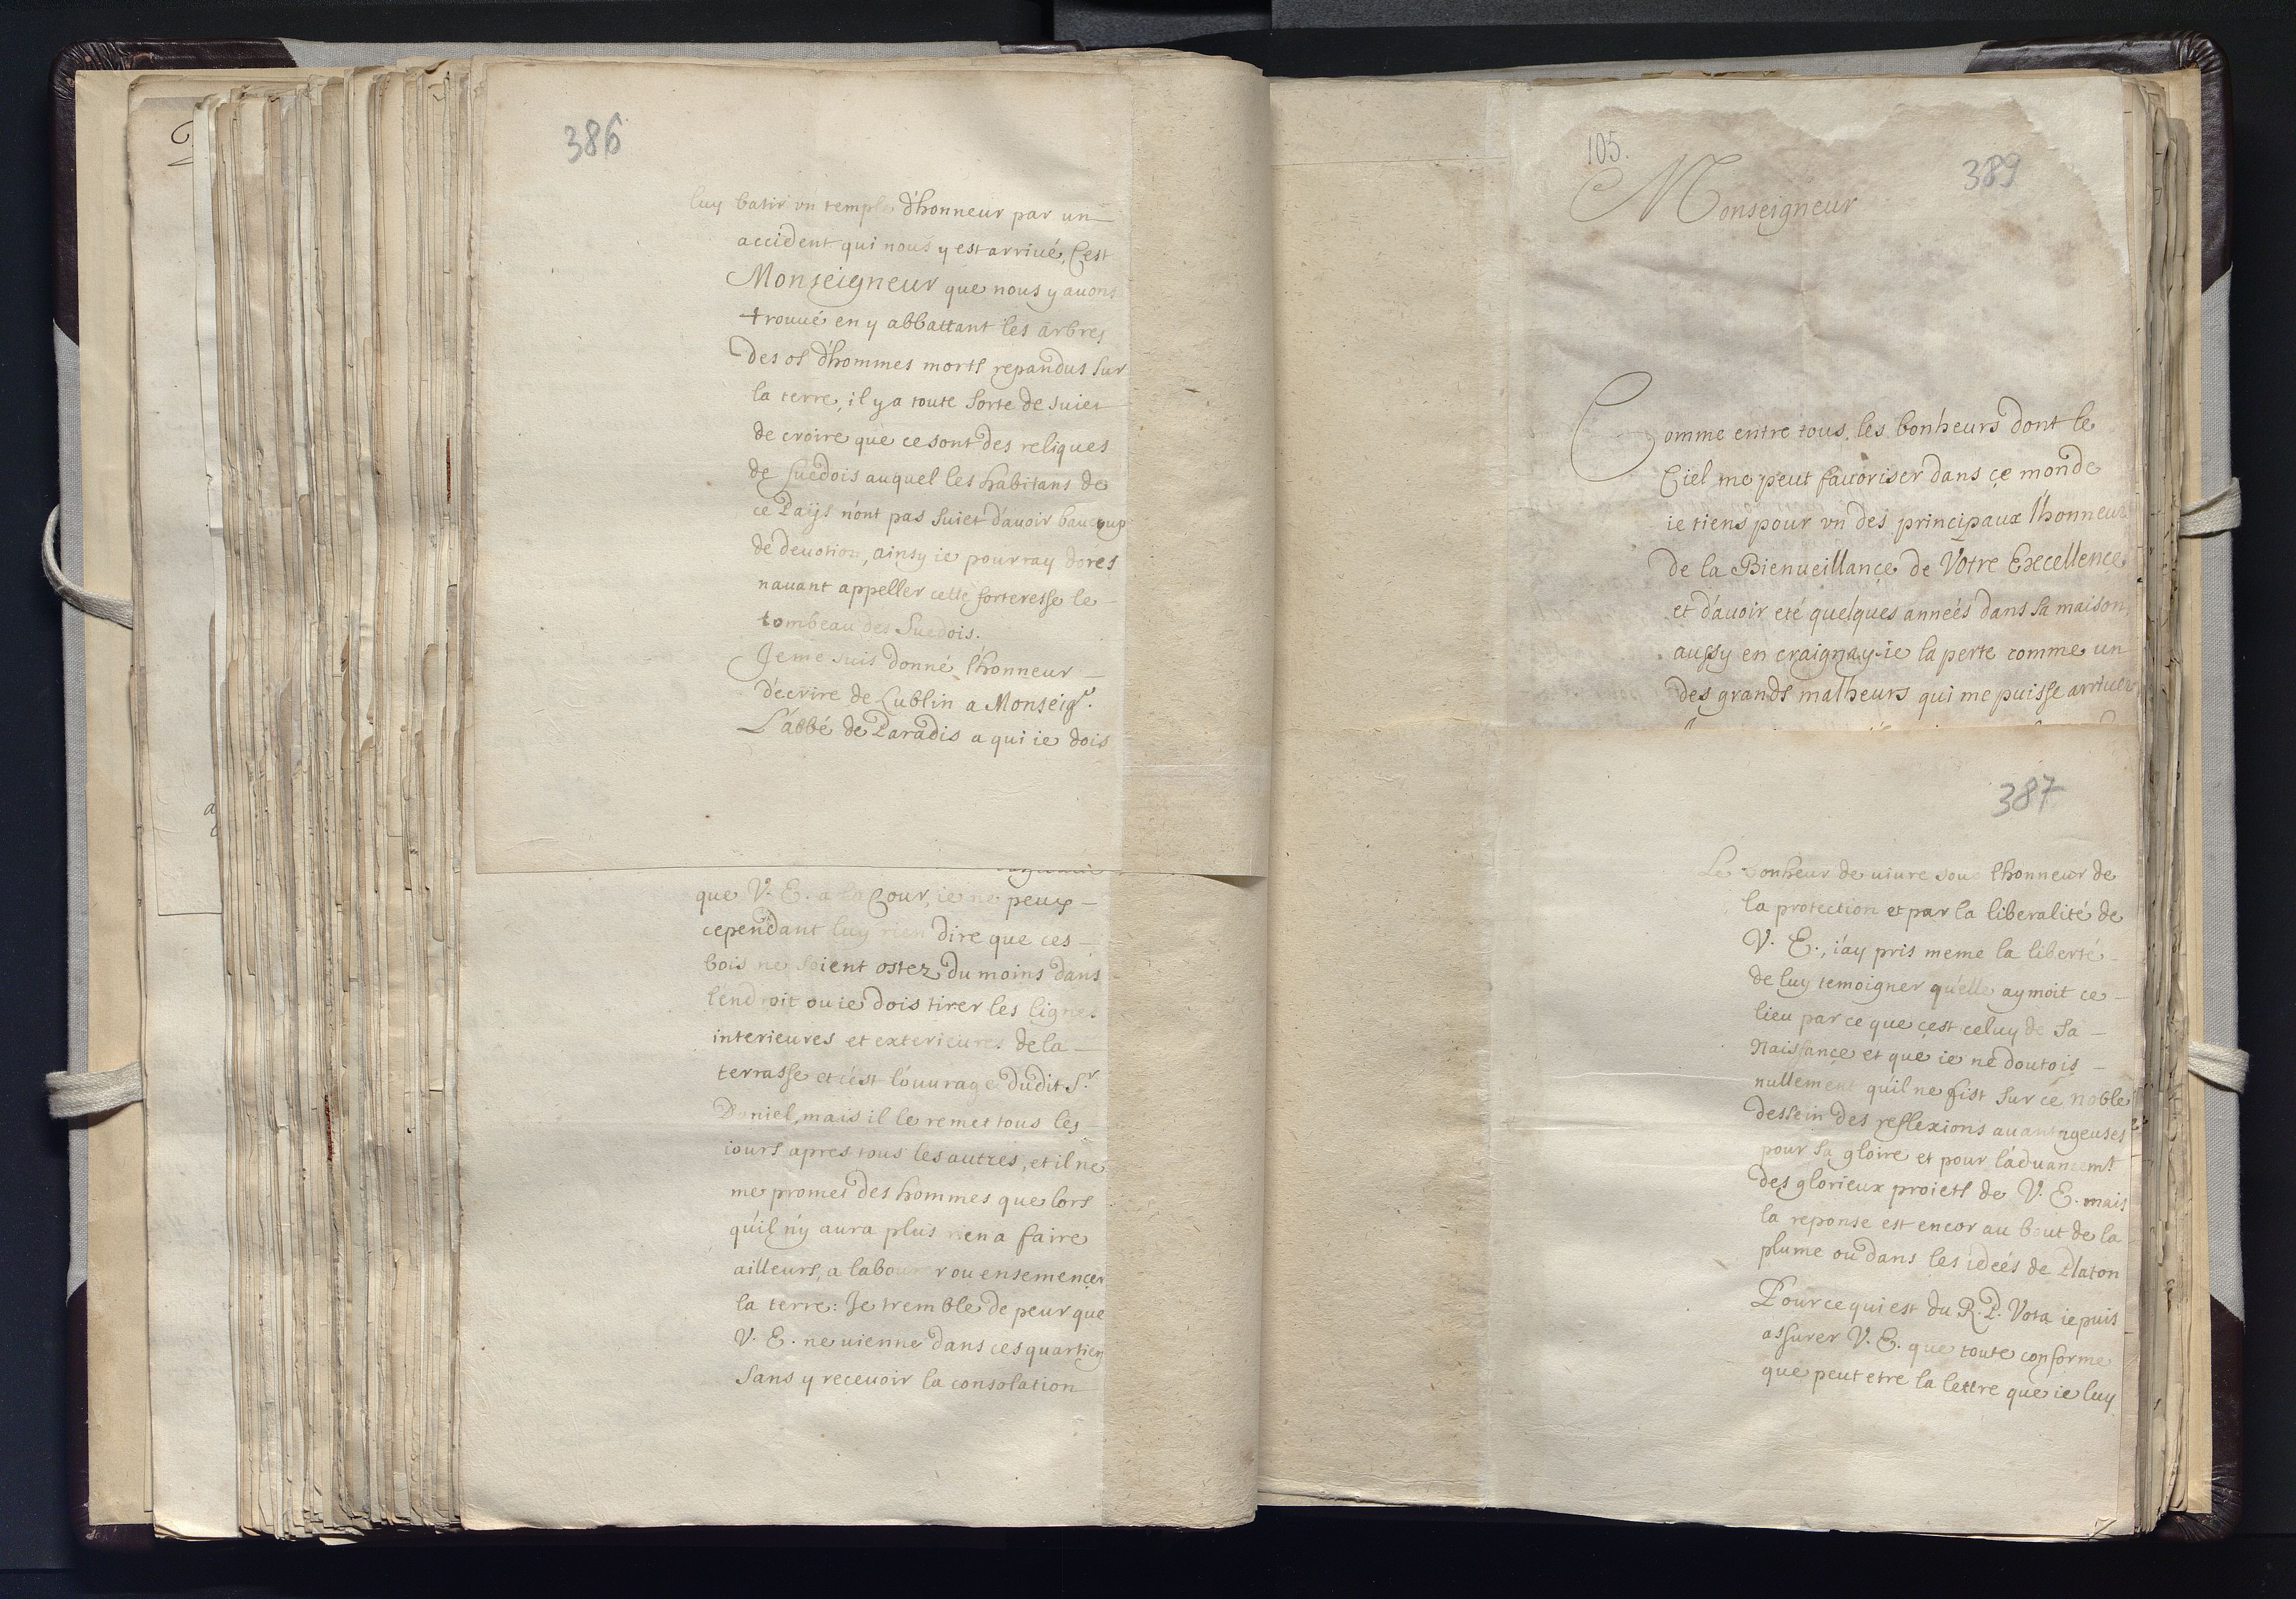 386
luy batir vn temple d'honneur par un
accident qui nous y est arriué, C'est
Monseigneur que nous y auons
trouué en y abbattant les arbres
Des os d'hommes morts repandus sur
la terre, il y a toute sorte de suiet
de croire que ce sont des reliques
de Suedois auquel les habitans de
ce Païs n'ont pas suiet d'auoir baucoup
de deuotion, ainsy ie pourray dores
nauant appeller cette forteresse le
tombeau des Suedois.
Je me suis donné l'honneur
d'ecrire de Lublin a Monseigr.
L'abbé de Paradis a qui ie dois
que V. E. a la Cour, ie ne peux
cependant luy rien dire que ces
bois ne soient ostez du moins dans
l'endroit ou ie dois tirer les lignes
interieures et exterieures de la
terrasse et c'est l'ouurage dudit Sr.
Daniel, mais il le remet tous les
iours apres tous les autres, et il ne
me promet des hommes que lors
qu'il n'y aura plus rien a faire
ailleurs, a labourer ou ensemencer
la terre: Je tremble de peur que
V. E. ne uienne dans ces quartiers
sans y receuoir la consolation
105.
389
Monseigneur
Comme entre tous les bonheurs dont le
Ciel me peut fauoriser dans ce monde
ie tiens pour vn des principaux l'honneur
de la Bienueillance de Votre Execellence
et d'auoir eté quelques anneés dans sa maison,
aussy en craignay-ie la perte comme un
des grands malheurs qui me puisse arriuer
387
Le bonheur de uiure sous l'honneur de
la protection et par la liberalité de
V. E., i'ay pris meme la liberté
de luy temoigner qu'elle aymoit ce
lieu par ce que c'est celuy de Sa
Naissance et que ie ne doutois
nullement qu'il ne fist sur ce noble
dessein des reflexions auantageuses
pour sa gloire et pour l'aduancemt
des glorieux proiets de V. E. mais
la reponse est encor au bout de la
plume ou dans les ideés de Platon
Pour ce qui est du R. P. Vota ie puis
assurer V. E. que toute conforme
que peut etre la lettre que ie luy